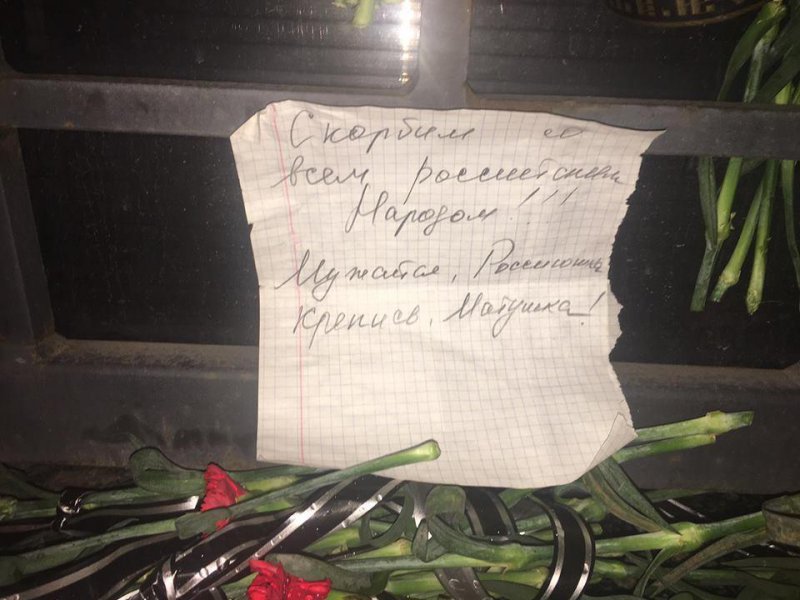 Скорбим со
всем российским
Народом!!!
Мужайся,
Крепись, Матушка!